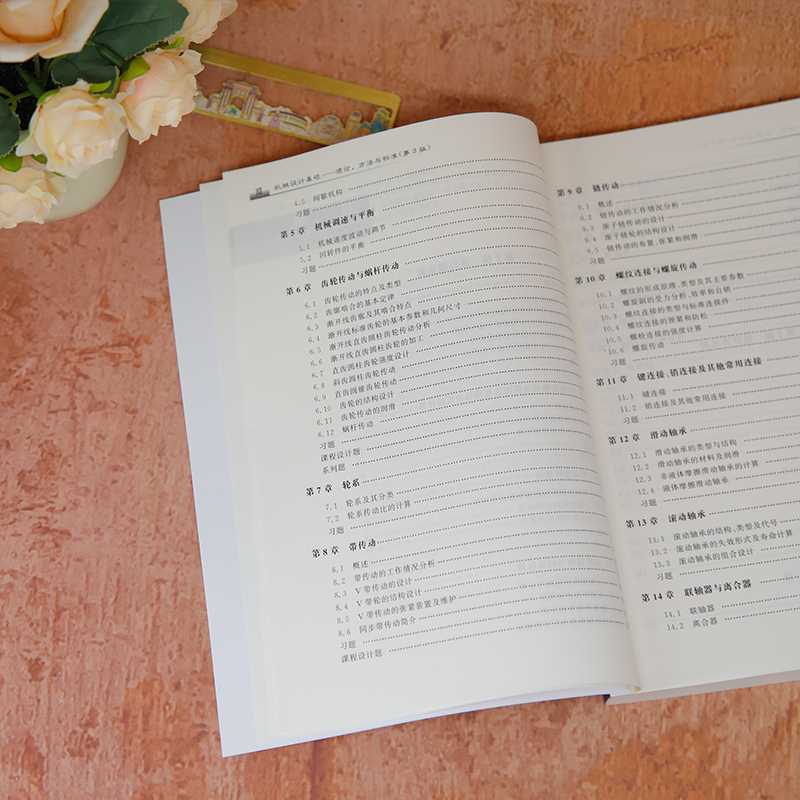 XI 机械设计基础——理论、方法与标准(第3版)
4.5 间歇机构
习题
第5章 机械调速与平衡
5.1 机械速度波动与调节
5.2 回转件的平衡
习题
第6章 齿轮传动与蜗杆传动
6.1 齿轮传动的特点及类型
6.2 齿廓啮合的基本定律
6.3 渐开线齿廓及其啮合特点
6.4 渐开线标准齿轮的基本参数和几何尺寸
6.5 渐开线直齿圆柱齿轮传动分析
6.6 渐开线直齿圆柱齿轮的加工
6.7 直齿圆柱齿轮强度设计
6.8 斜齿圆柱齿轮传动
6.9 直齿圆锥齿轮传动
6.10 齿轮的结构设计
6.11 齿轮传动的润滑
6.12 蜗杆传动
习题
课程设计题
系列题
第7章 轮系
7.1 轮系及其分类
7.2 轮系传动比的计算
习题
第8章 带传动
8.1 概述
8.2 带传动的工作情况分析
8.3 V带传动的设计
8.4 V带轮的结构设计
8.5 V带传动的张紧装置及维护
8.6 同步带传动简介
习题
课程设计题
第9章 链传动
9.1 概述
9.2 链传动的工作情况分析
9.3 滚子链传动的设计
9.4 滚子链轮的结构设计
9.5 链传动的布置、张紧和润滑
习题
第10章 螺纹连接与螺旋传动
10.1 螺纹的形成原理、类型及其主要参数
10.2 螺旋副的受力分析、效率和自锁
10.3 螺纹连接的类型与标准连接件
10.4 螺纹连接的预紧和防松
10.5 螺栓连接的强度计算
10.6 螺旋传动
习题
第11章 键连接、销连接及其他常用连接
11.1 键连接
11.2 销连接及其他常用连接
习题
第12章 滑动轴承
12.1 滑动轴承的类型与结构
12.2 滑动轴承的材料及润滑
12.3 非液体摩擦滑动轴承的计算
12.4 液体摩擦滑动轴承
习题
第13章 滚动轴承
13.1 滚动轴承的结构、类型及代号
13.2 滚动轴承的失效形式及寿命计算
13.3 滚动轴承的组合设计
习题
第14章 联轴器与离合器
14.1 联轴器
14.2 离合器